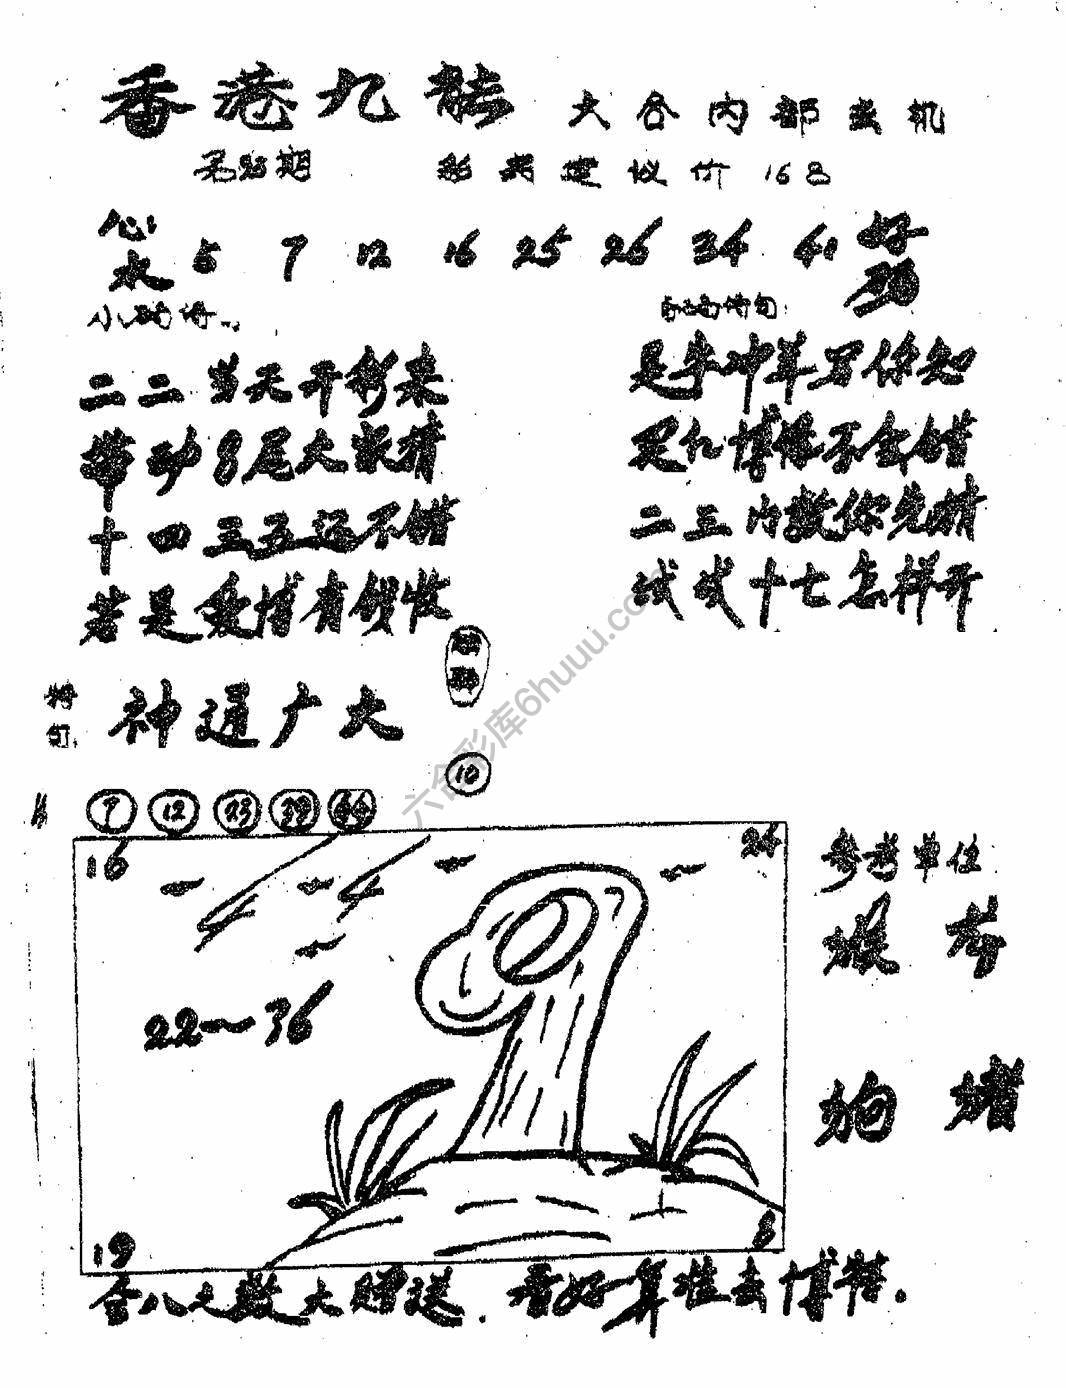 香港九龍 六合内部玄机
特码建议价 168
心水 5 7 12 16 25 26 34 41 好码
二二当天开彩来
带动8尾大家猜
十四三五还不错
若是爱博有钱收
是牛冲羊另你知
足仇博得不会错
二三内数你先猜
线线十七怎样开
神通广大
10
7 12 23 39 44
16 24
参考单位
猴 羊
22～36
狗 猪
19 8
合八之数大赠送. 看好算准去博特.
六合彩库6huuu.com